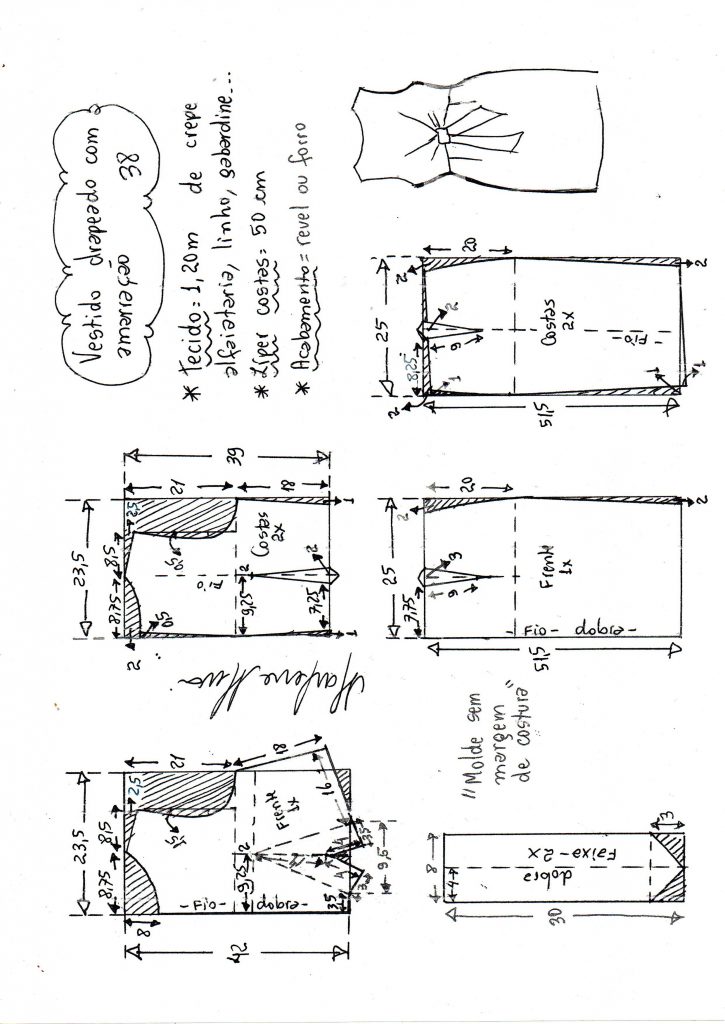 Vestido drapeado com
amarração 38
* Tecido = 1,20m de crepe
alfaiataria, linho, gabardine...
* Zíper costas = 50 cm
* Acabamento = revel ou forro
23,5
8,75
8,5
2,5
8
21
18
1,5
9,25
2
Frente
1x
16
-Fio- dobra-
3,5
4
4
3,5
3
9,5
42
23,5
8,75
8,5
2,5
2
0,5
21
0,5
Fio
Costas
2x
9,25
2
18
39
7,25
2
1
1
Marlene Mukai
"Molde sem
margem
de costura"
8
4
dobra
Faixa-2x
30
3
25
7,75
2
20
9
3
Frente
1x
-Fio- dobra-
51,5
2
25
2
8,25
2
20
1
9
2
Costas
2x
-Fio-
51,5
1
1
2